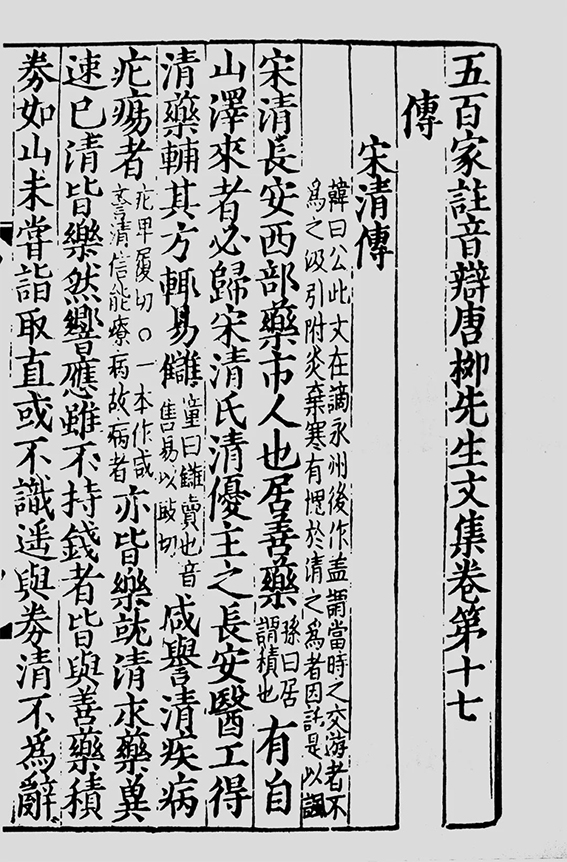 五百家註音辯唐柳先生文集卷第十七
傳
宋清傳
韓曰公此文在謫永州後作盖謂當時之交游者不
爲之汲引附炎棄寒有愧於清之爲者因託是以諷
宋清長安西部藥市人也居善藥孫曰居謂積也有自
山澤來者必歸宋清氏清優主之長安醫工得
清藥輔其方輒易讎童曰讎賣也音售易以豉切咸譽清疾病
疕瘍者疕甲履切○一本作咸誉清信能療病故病者亦皆樂就清求藥冀
速已清皆樂然響應雖不持錢者皆與善藥積
券如山未甞詣取直或不識遥與券清不爲辭